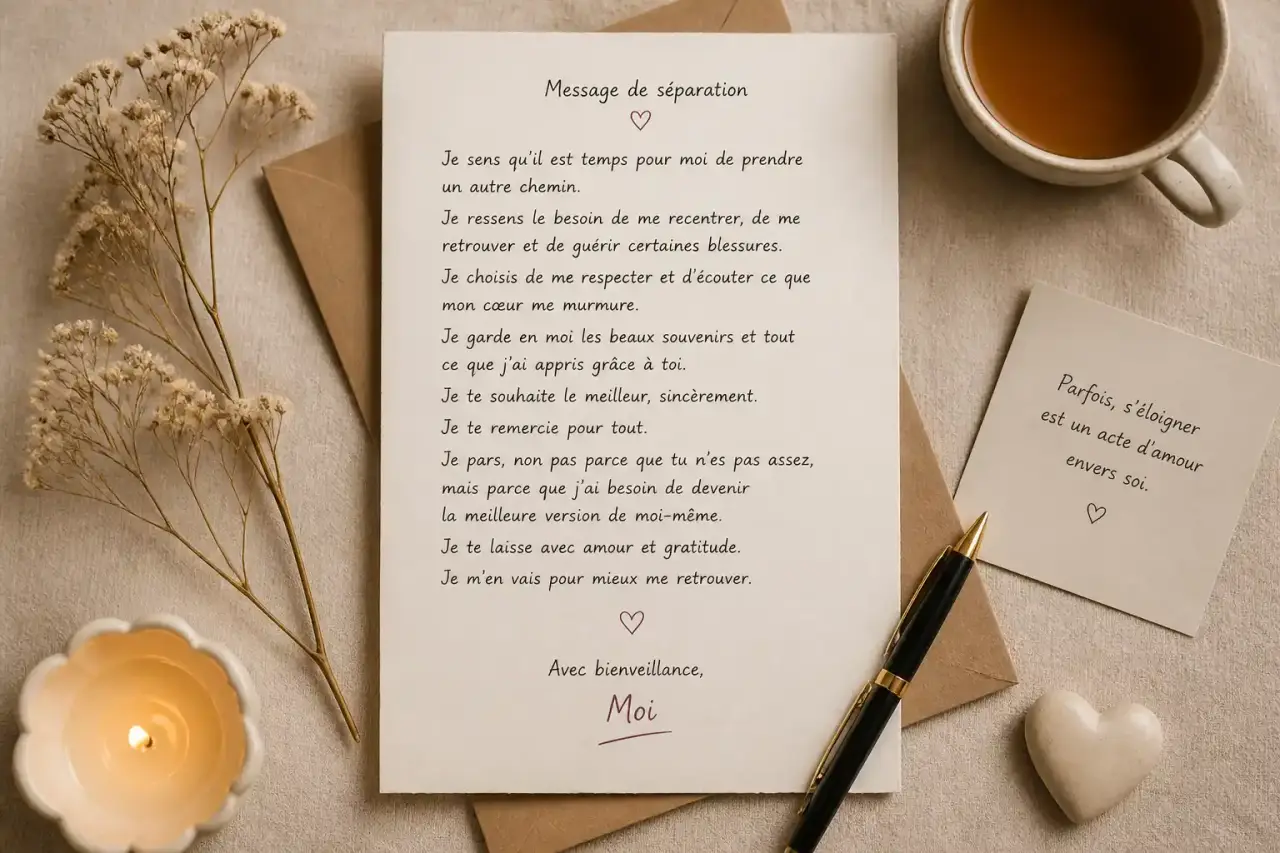 Message de séparation
Je sens qu'il est temps pour moi de prendre
un autre chemin.
Je ressens le besoin de me recentrer, de me
retrouver et de guérir certaines blessures.
Je choisis de me respecter et d'écouter ce que
mon cœur me murmure.
Je garde en moi les beaux souvenirs et tout
ce que j'ai appris grâce à toi.
Je te souhaite le meilleur, sincèrement.
Je te remercie pour tout.
Je pars, non pas parce que tu n'es pas assez,
mais parce que j'ai besoin de devenir
la meilleure version de moi-même.
Je te laisse avec amour et gratitude.
Je m'en vais pour mieux me retrouver.
Avec bienveillance,
Moi
Parfois, s'éloigner
est un acte d'amour
envers soi.